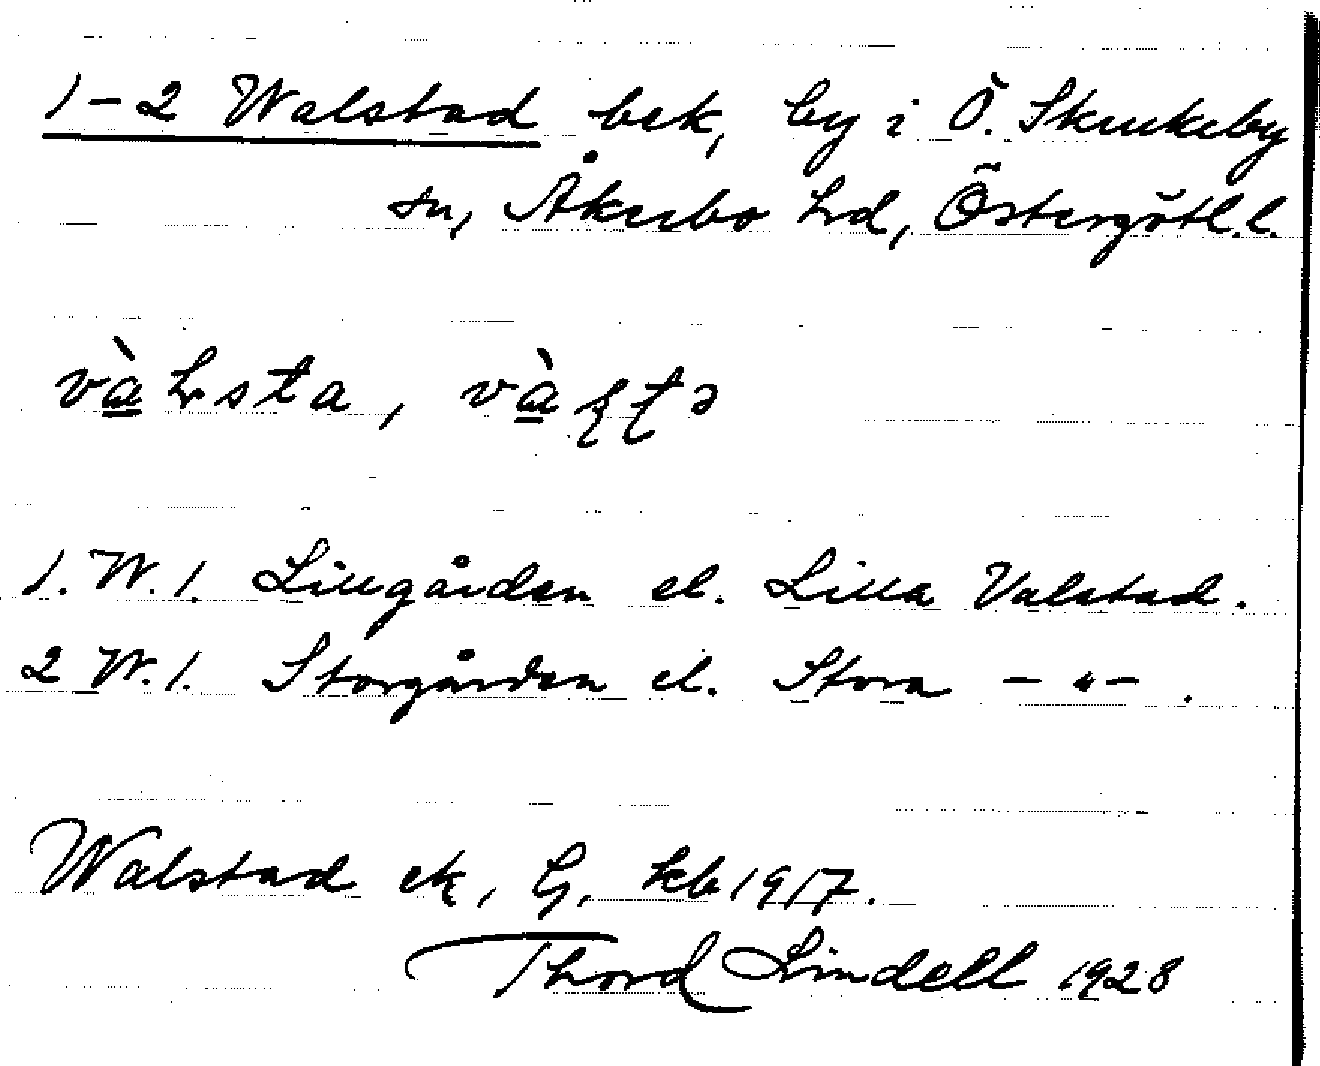 1-2 Walstad bek, by i Ö. Skrukeby
sn, Åkerbo hd, Östergötl. l.
1. W. 1. Lillgården el. Lilla Valstad.
2 W. 1. Storgården el. Stora -"-.
Walstad ek, G, kb 1917.
Thord Lindell 1928